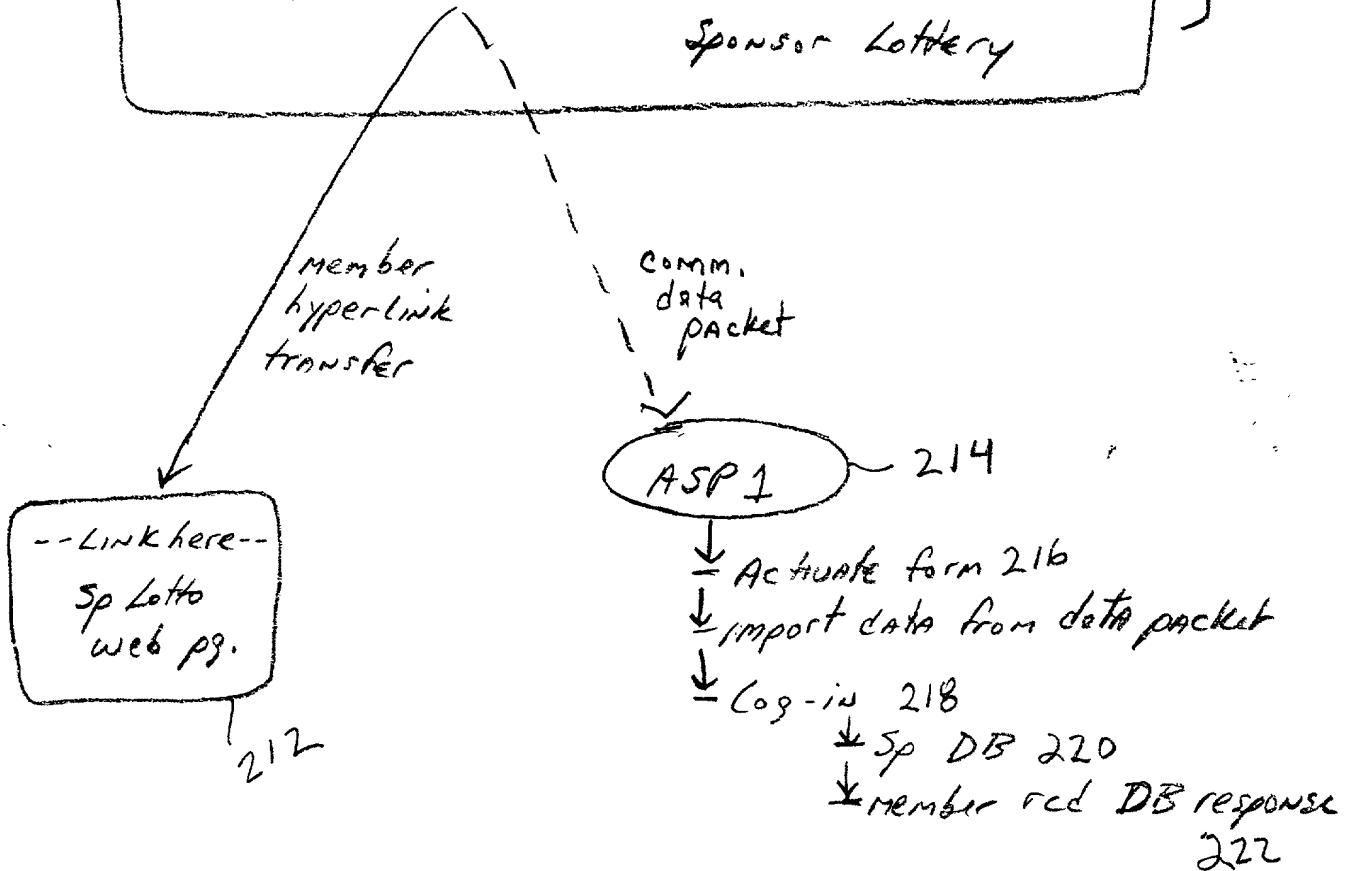 Sponsor Lottery
member
hyperlink
transfer
comm.
data
packet
ASP 1
214
--Link here--
Sp Lotto
web pg.
212
Activate form 216
import data from data packet
Log-in 218
Sp DB 220
member rcd DB response
222